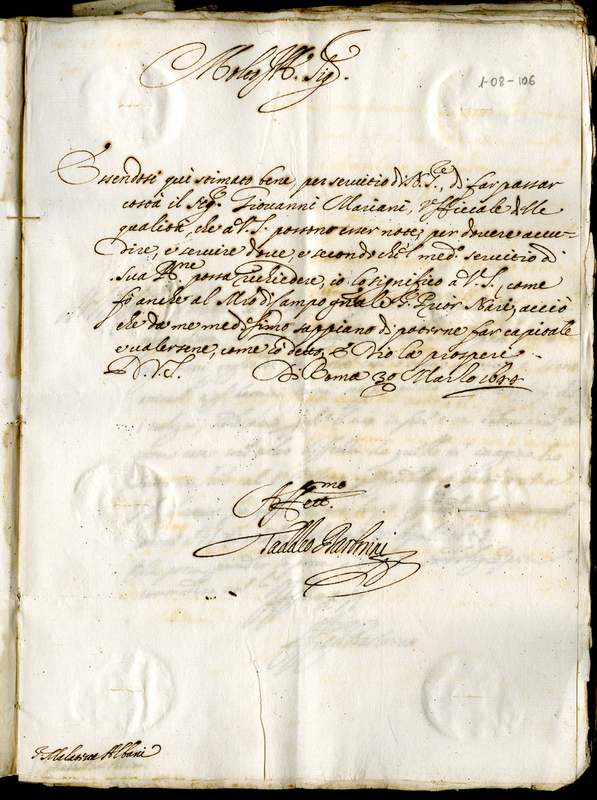 Molto Ill. Sig.
1-08-106
Essendosi qui stimato bene, per servitio di N. S.re, di far passar
costà il Sig. Giovanni Mariani, Officiale delle
qualità, che à V.S. possono esser note, per dovere accu-
dire, e servire dove, e secondo che'l med.o servitio di
sua S.ne possa richiedere, io lo significo à V.S., come
fò anche al Mro di Campo gnãle S. Prior Nari, acciò
che da me medesimo sappiano di poterne far capitale
e valersene, come hò detto, e Dio la prosperi
D. V.S. Di Roma 30 Marzo
Aff.mo
Taddeo Barberini
S. Malatesta Albani